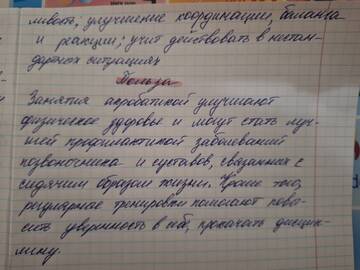 ливость, улучшение координации, баланса
и реакции; учит действовать в нестан-
дартных ситуациях
Польза
Занятия акробатикой улучшают
физическое здоровье и могут стать луч-
шей профилактикой заболеваний
позвоночника и суставов, связанных с
сидячим образом жизни. Кроме того,
регулярные тренировки помогают повы-
сить уверенность в себе, прокачать дисцип-
лину.